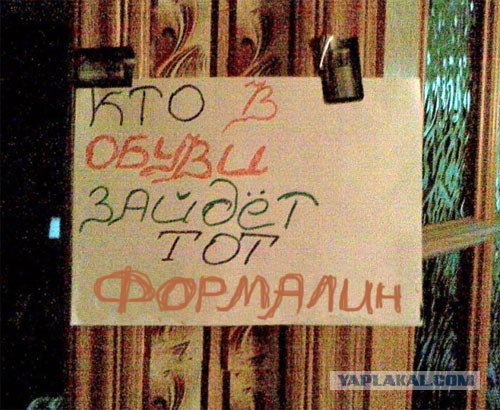 КТО В
ОБУВИ
ЗАЙДЁТ
ТОТ
ФОРМАЛИН
YAPLAKAL.COM